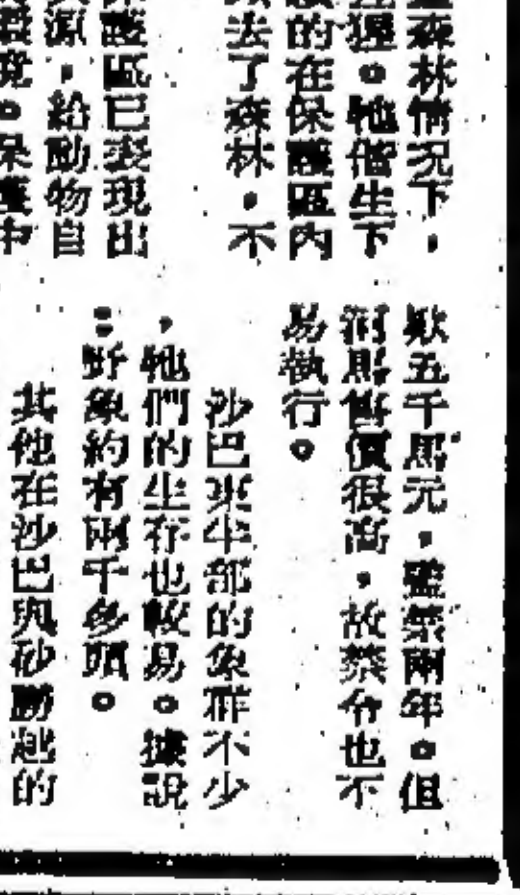 森林情況下，
猩。牠偕生下
的在保護區內
去了森林，不
護區已表現出
源，給動物自
境。保護中
款五千馬元，監禁兩年。但
洞則售價很高，故禁令也不
易執行。
沙巴東半部的象群不少
，牠們的生存也較易。據說
：野象約有兩千多頭。
其他在沙巴與砂勝越的